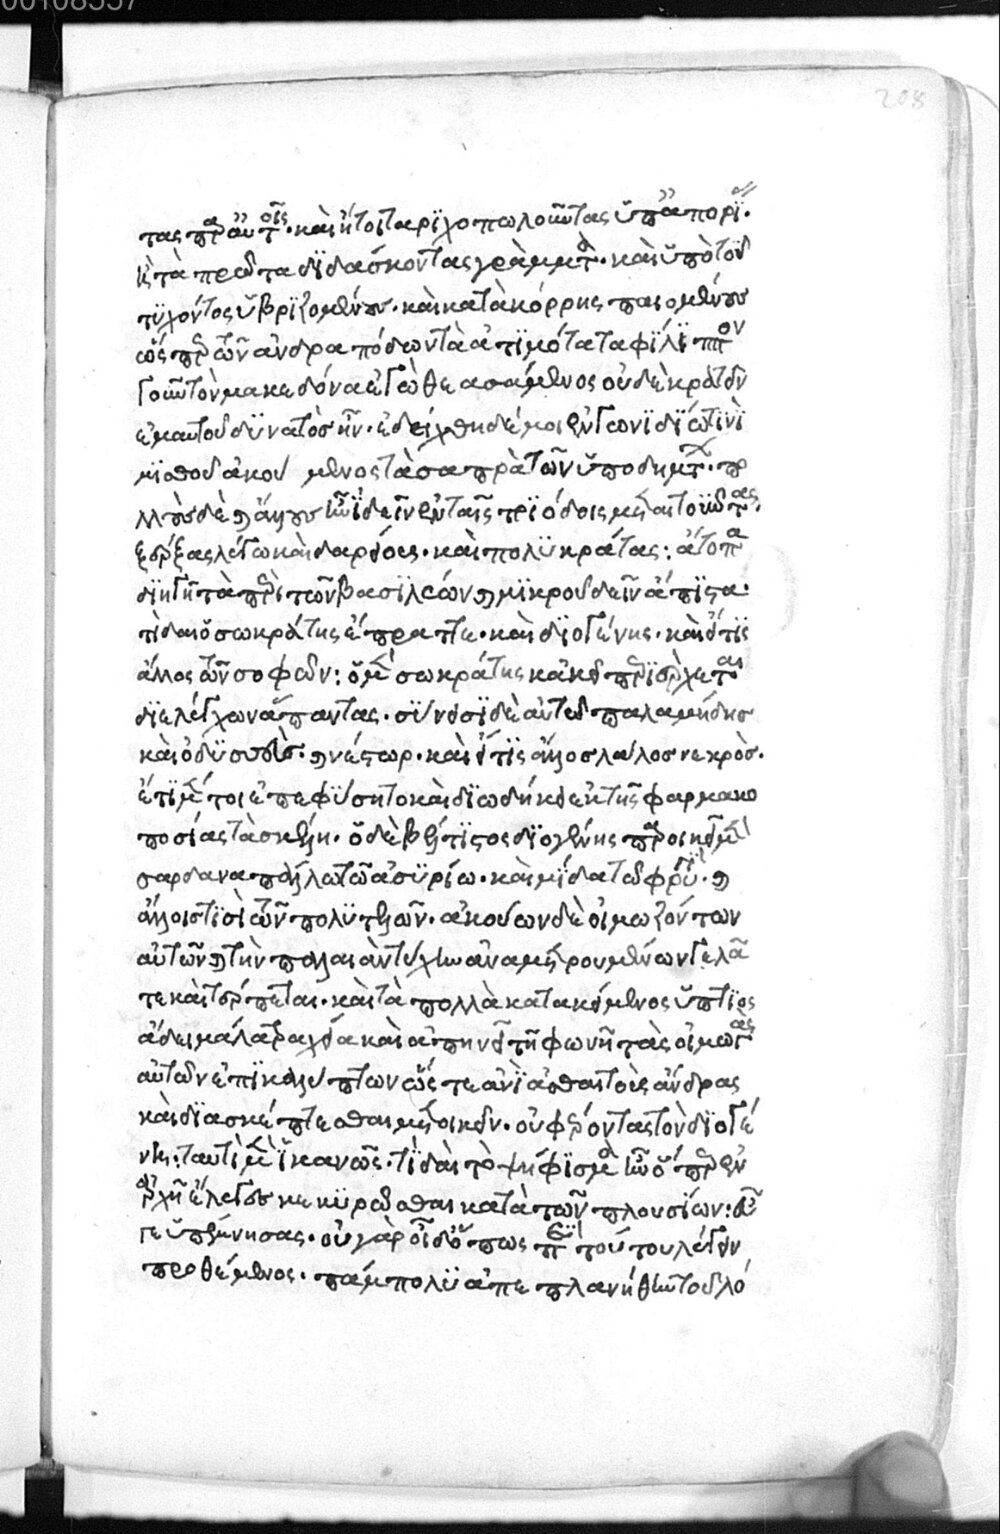 τας παρ' αὐτοῖς. καὶ ἤτοι ταριχοπωλοῦντας ὑπ' ἀπορίας.
ἢ τὰ πρῶτα διδάσκοντας γράμματα. καὶ ὑπὸ τοῦ
τυχόντος ὑβριζομένους. καὶ κατὰ κόρρης παιομένους
ὥσπερ τῶν ἀνδραπόδων τὰ ἀτιμότατα φίλιππον
γοῦν τὸν μακεδόνα ἐγὼ θεασάμενος οὐδὲ κρατεῖν
ἐμαυτοῦ δυνατὸς ἦν. ἐδείχθη δέ μοι ἐν γωνιδίῳ τινὶ
μισθοῦ ἀκούμενος τὰ σαπρὰ τῶν ὑποδημάτων. πο
λλοὺς δὲ καὶ ἄλλους ἦν ἰδεῖν ἐν ταῖς τριόδοις μεταιτοῦντας.
ξέρξας λέγω καὶ δαρείους. καὶ πολυκράτας: ἄτοπα
διηγῇ τὰ περὶ τῶν βασιλέων καὶ μικροῦ δεῖν ἄπιστα.
τί δαὶ ὁ σωκράτης ἔπραττε. καὶ διογένης. καὶ εἴ τις
ἄλλος τῶν σοφῶν: ὁ μὲν σωκράτης κἀκεῖ περιέρχεται
διελέγχων ἅπαντας. σύνεισι δὲ αὐτῷ παλαμήδης
καὶ ὀδυσσεὺς. καὶ νέστωρ. καὶ εἴ τις ἄλλος λάλος νεκρὸς.
ἔτι μέν τοι ἐπεφύσητο καὶ διωδήκει ἐκ τῆς φαρμακο
ποσίας τὰ σκέλη. ὁ δὲ βέλτιστος διογένης παροικεῖ μὲν
σαρδαναπάλλῳ τῷ ἀσυρίῳ. καὶ μίδα τῷ φρυγί. καὶ
ἄλλοις τισὶ τῶν πολυτελῶν. ἀκούων δὲ οἰμωζόντων
αὐτῶν καὶ τὴν παλαιὰν τύχην ἀναμετρουμένων γελᾶ
τε καὶ τέρπεται. καὶ τὰ πολλὰ κατακείμενος ὕπτιος
ἄδει μάλα τραχείᾳ καὶ ἀπηνεῖ τῇ φωνῇ τὰς οἰμωγὰς
αὐτῶν ἐπικαλύπτων ὥστε ἀνιᾶσθαι τοὺς ἄνδρας
καὶ διασκέπτεσθαι μετοικεῖν. οὐ φέροντας τὸν διογέ
νην: ταυτὶ μὲν ἱκανῶς. τί δαὶ τὸ ψήφισμα ἦν ὅπερ ἐν
ἀρχῇ ἔλεγες κεκυρῶσθαι κατὰ τῶν πλουσίων: εὖ
γε ὑπέμνησας. οὐ γὰρ οἶδ' ὅπως περὶ τούτου λέγειν
προθέμενος. πάμπολυ ἀπεπλανήθην τοῦ λό